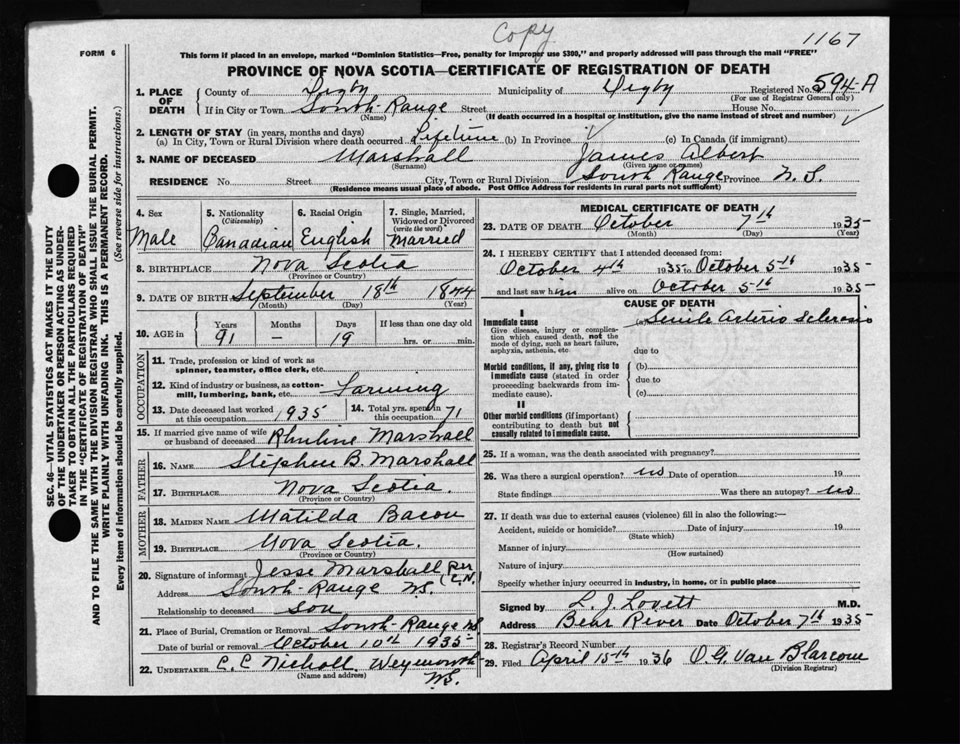 Copy
1167
FORM 6
This form if placed in an envelope, marked "Dominion Statistics—Free, penalty for improper use $300," and properly addressed will pass through the mail "FREE"
PROVINCE OF NOVA SCOTIA—CERTIFICATE OF REGISTRATION OF DEATH
1. PLACE OF DEATH County of Digby Municipality of Digby Registered No. 594-A
(For use of Registrar General only)
If in City or Town South-Range Street House No.
(Name) (If death occurred in a hospital or institution, give the name instead of street and number)
2. LENGTH OF STAY (in years, months and days)
(a) In City, Town or Rural Division where death occurred Lifetime (b) In Province (c) In Canada (if immigrant)
3. NAME OF DECEASED Marshall James Albert
(Surname) (Given name or names)
RESIDENCE No. Street City, Town or Rural Division South Range Province N.S.
(Residence means usual place of abode. Post Office Address for residents in rural parts not sufficient)
4. Sex Male
5. Nationality (Citizenship) Canadian
6. Racial Origin English
7. Single, Married, Widowed or Divorced (write the word) married
8. BIRTHPLACE Nova Scotia
(Province or Country)
9. DATE OF BIRTH September 18th 1844
(Month) (Day) (Year)
10. AGE in Years Months Days If less than one day old
91 — 19 hrs. or min.
OCCUPATION
11. Trade, profession or kind of work as spinner, teamster, office clerk, etc.
12. Kind of industry or business, as cotton-mill, lumbering, bank, etc. Farming
13. Date deceased last worked at this occupation 1935
14. Total yrs. spent in this occupation 71
15. If married give name of wife or husband of deceased Marshall
FATHER
16. NAME Stephen B. Marshall
17. BIRTHPLACE Nova Scotia.
(Province or Country)
MOTHER
18. MAIDEN NAME Matilda Bacon
19. BIRTHPLACE Nova Scotia.
(Province or Country)
20. Signature of informant Jesse Marshall per
Address South-Range N.S.
Relationship to deceased Son
21. Place of Burial, Cremation or Removal South-Range N.S.
Date of burial or removal October 10th 1935
22. UNDERTAKER C.C. Nichall Weymouth
(Name and address) N.S.
MEDICAL CERTIFICATE OF DEATH
23. DATE OF DEATH October 7th 1935
(Month) (Day) (Year)
24. I HEREBY CERTIFY that I attended deceased from:
October 4th 1935 to October 5th 1935
and last saw him alive on October 5th 1935
CAUSE OF DEATH
I
Immediate cause (a) Senile Arterio Sclerosis
Give disease, injury or complication which caused death, not the mode of dying, such as heart failure, asphyxia, asthenia, etc
due to
Morbid conditions, if any, giving rise to immediate cause (stated in order proceeding backwards from immediate cause).
(b)
due to
(c)
II
Other morbid conditions (if important) contributing to death but not causally related to immediate cause.
25. If a woman, was the death associated with pregnancy?
26. Was there a surgical operation? no Date of operation 19
State findings Was there an autopsy? no
27. If death was due to external causes (violence) fill in also the following:—
Accident, suicide or homicide? Date of injury 19
(State which)
Manner of injury
(How sustained)
Nature of injury
Specify whether injury occurred in industry, in home, or in public place
Signed by L. J. Lovett M.D.
Address Bear River Date October 7th 1935
28. Registrar's Record Number
29. Filed April 15th 1936 O. G. Van Blarcom
(Division Registrar)
SEC. 46—VITAL STATISTICS ACT MAKES IT THE DUTY
OF THE UNDERTAKER OR PERSON ACTING AS UNDER-
TAKER TO OBTAIN ALL THE PARTICULARS REQUIRED
IN THE "CERTIFICATE OF REGISTRATION OF DEATH"
AND TO FILE THE SAME WITH THE DIVISION REGISTRAR WHO SHALL ISSUE THE BURIAL PERMIT.
WRITE PLAINLY WITH UNFADING INK. THIS IS A PERMANENT RECORD.
Every item of information should be carefully supplied. (See reverse side for instructions.)